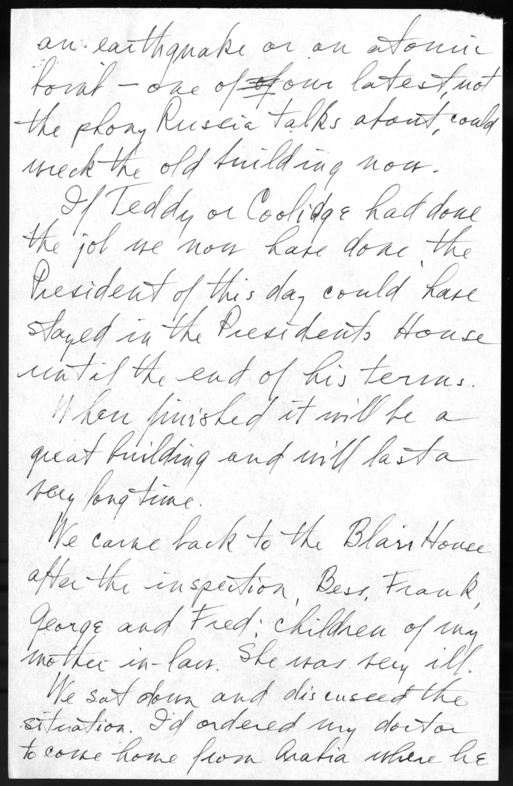 an earthquake or an atomic
bomb – one of of our latest, not
the phony Russia talks about, could
wreck the old building now.
If Teddy or Coolidge had done
the job we now have done, the
President of this day could have
stayed in the Presidents House
until the end of his terms.
When finished it will be a
great building and will last a
very long time.
We came back to the Blair House
after the inspection, Bess, Frank,
George and Fred; children of my
mother in-law. She was very ill.
We sat down and discussed the
situation. I'd ordered my doctor
to come home from Arabia where he